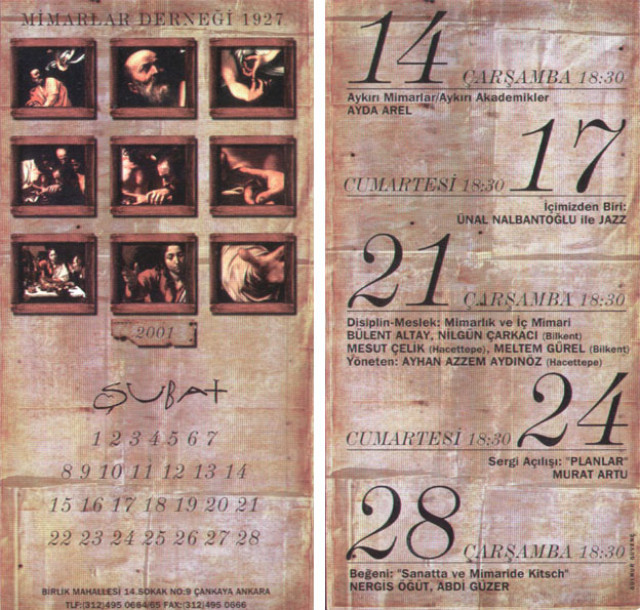 MİMARLAR DERNEĞİ 1927
2001
Şubat
1 2 3 4 5 6 7
8 9 10 11 12 13 14
15 16 17 18 19 20 21
22 23 24 25 26 27 28
BİRLİK MAHALLESİ 14.SOKAK NO:9 ÇANKAYA ANKARA
TLF:(312)495 0664/65 FAX:(312)495 0666
14 ÇARŞAMBA 18:30
Aykırı Mimarlar/Aykırı Akademikler
AYDA AREL
CUMARTESİ 18:30 17
İçimizden Biri:
ÜNAL NALBANTOĞLU ile JAZZ
21 ÇARŞAMBA 18:30
Disiplin-Meslek: Mimarlık ve İç Mimari
BÜLENT ALTAY, NİLGÜN ÇARKACI (Bilkent)
MESUT ÇELİK (Hacettepe), MELTEM GÜREL (Bilkent)
Yöneten: AYHAN AZZEM AYDINÖZ (Hacettepe)
CUMARTESİ 18:30 24
Sergi Açılışı: "PLANLAR"
MURAT ARTU
28 ÇARŞAMBA 18:30
Beğeni: "Sanatta ve Mimaride Kitsch"
NERGIS ÖĞÜT, ABDİ GÜZER